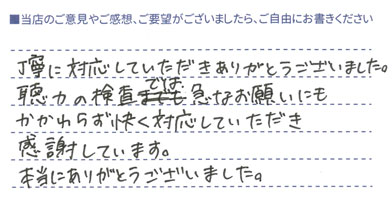 ■当店のご意見やご感想、ご要望がございましたら、ご自由にお書きください
丁寧に対応していただきありがとうございました。
聴力の検査では急なお願いにも
かかわらず快く対応していただき
感謝しています。
本当にありがとうございました。